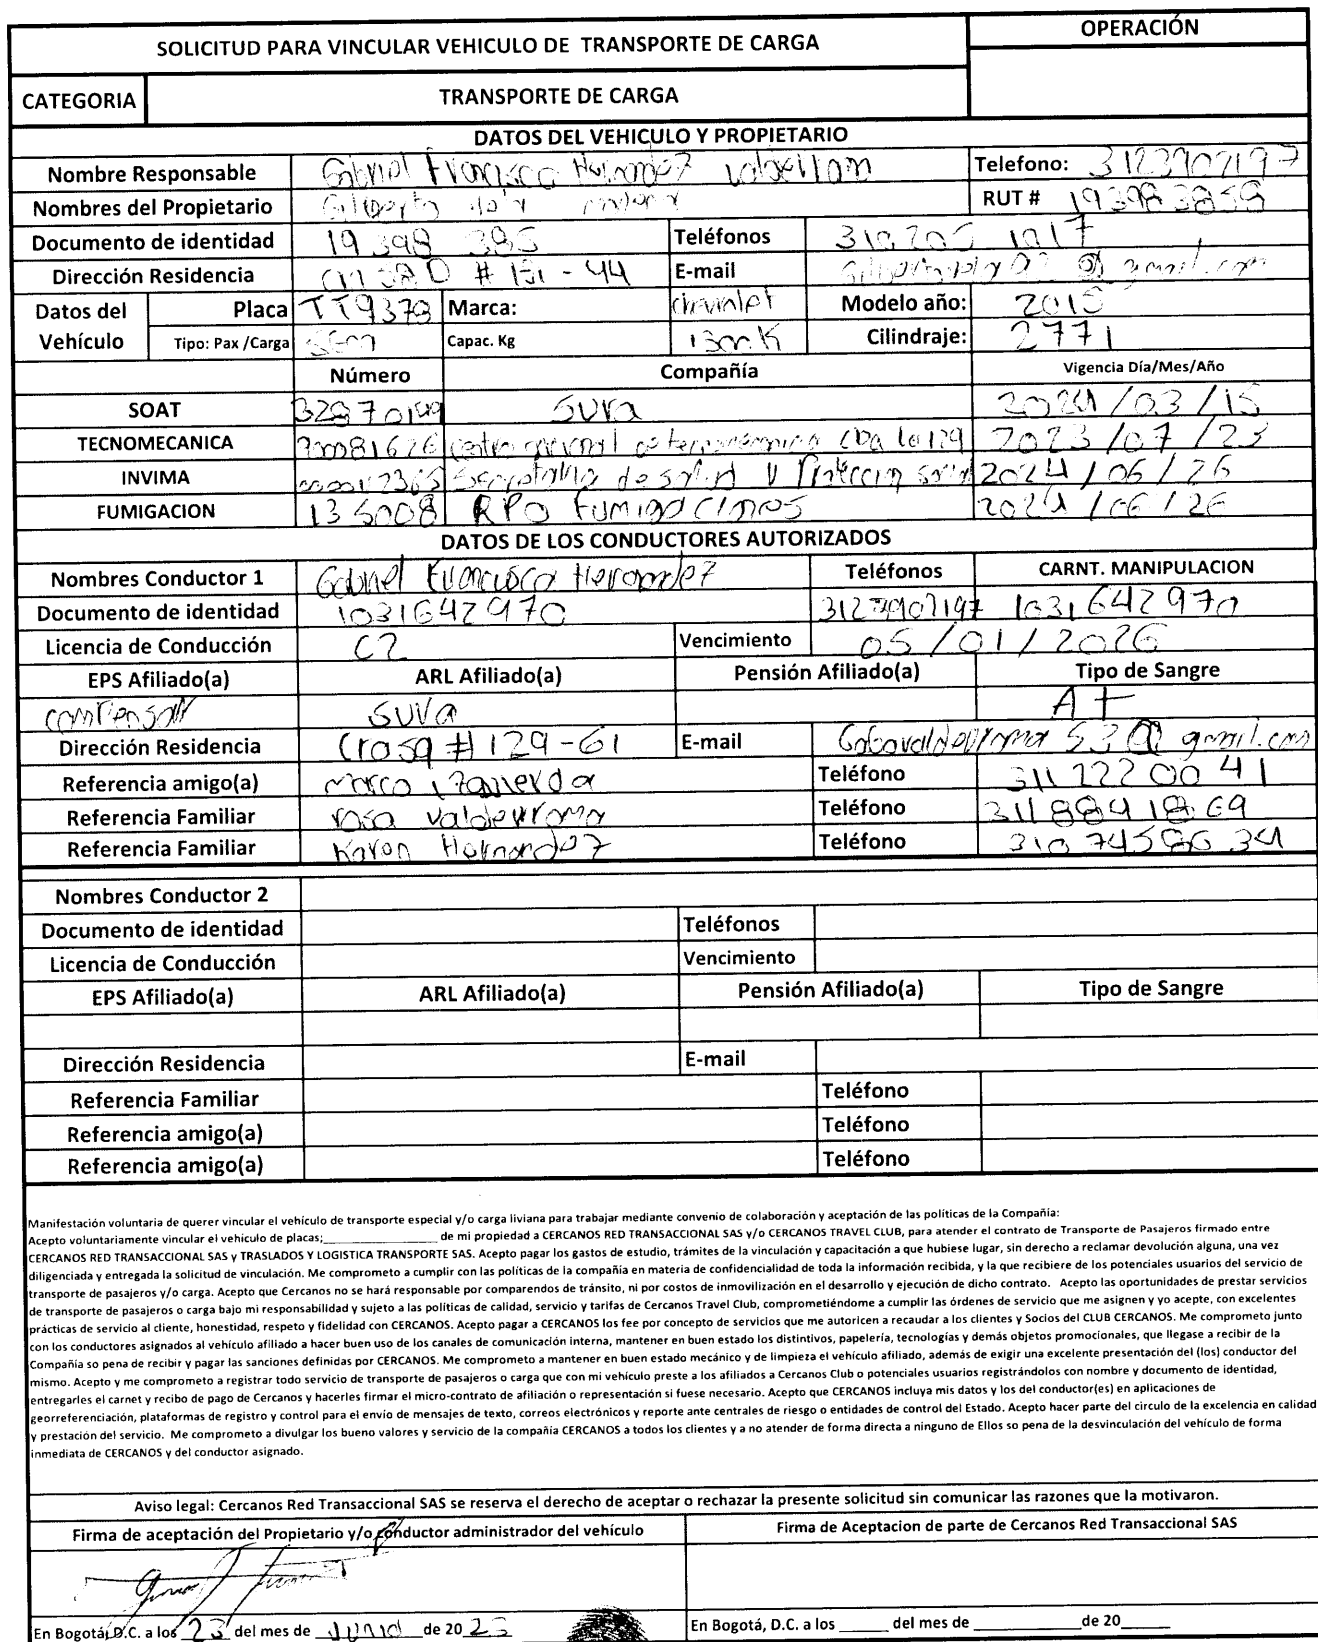 SOLICITUD PARA VINCULAR VEHICULO DE TRANSPORTE DE CARGA
OPERACIÓN
CATEGORIA
TRANSPORTE DE CARGA
DATOS DEL VEHICULO Y PROPIETARIO
Nombre Responsable Gabriel Francisco Hernandez Telefono: 3123907197
Nombres del Propietario Gilberto RUT #
Documento de identidad 19 398 385 Teléfonos
Dirección Residencia # 151 - 44 E-mail @ gmail.com
Datos del Vehículo Placa Marca: chevrolet Modelo año: 2015
Tipo: Pax /Carga Capac. Kg 1300 K Cilindraje: 2771
Número Compañía Vigencia Día/Mes/Año
SOAT Sura 2024/03/15
TECNOMECANICA 2023/07/23
INVIMA Secretaria de salud y Proteccion social 2024/06/26
FUMIGACION 135008 RPO Fumigaciones 2024/06/26
DATOS DE LOS CONDUCTORES AUTORIZADOS
Nombres Conductor 1 Gabriel Francisco Hernandez Teléfonos CARNT. MANIPULACION
Documento de identidad 1031642970 3123907197 1031642970
Licencia de Conducción C2 Vencimiento 05/01/2026
EPS Afiliado(a) ARL Afiliado(a) Pensión Afiliado(a) Tipo de Sangre
compensar sura A+
Dirección Residencia Cra 59 # 129-61 E-mail @ gmail.com
Referencia amigo(a) marco Teléfono 311 222 00 41
Referencia Familiar rosa valderrama Teléfono 311 884 18 69
Referencia Familiar Karen Hernandez Teléfono
Nombres Conductor 2
Documento de identidad Teléfonos
Licencia de Conducción Vencimiento
EPS Afiliado(a) ARL Afiliado(a) Pensión Afiliado(a) Tipo de Sangre
Dirección Residencia E-mail
Referencia Familiar Teléfono
Referencia amigo(a) Teléfono
Referencia amigo(a) Teléfono
Manifestación voluntaria de querer vincular el vehículo de transporte especial y/o carga liviana para trabajar mediante convenio de colaboración y aceptación de las políticas de la Compañía:
Acepto voluntariamente vincular el vehículo de placas;__________________ de mi propiedad a CERCANOS RED TRANSACCIONAL SAS y/o CERCANOS TRAVEL CLUB, para atender el contrato de Transporte de Pasajeros firmado entre
CERCANOS RED TRANSACCIONAL SAS y TRASLADOS Y LOGISTICA TRANSPORTE SAS. Acepto pagar los gastos de estudio, trámites de la vinculación y capacitación a que hubiese lugar, sin derecho a reclamar devolución alguna, una vez
diligenciada y entregada la solicitud de vinculación. Me comprometo a cumplir con las políticas de la compañía en materia de confidencialidad de toda la información recibida, y la que recibiere de los potenciales usuarios del servicio de
transporte de pasajeros y/o carga. Acepto que Cercanos no se hará responsable por comparendos de tránsito, ni por costos de inmovilización en el desarrollo y ejecución de dicho contrato. Acepto las oportunidades de prestar servicios
de transporte de pasajeros o carga bajo mi responsabilidad y sujeto a las políticas de calidad, servicio y tarifas de Cercanos Travel Club, comprometiéndome a cumplir las órdenes de servicio que me asignen y yo acepte, con excelentes
prácticas de servicio al cliente, honestidad, respeto y fidelidad con CERCANOS. Acepto pagar a CERCANOS los fee por concepto de servicios que me autoricen a recaudar a los clientes y Socios del CLUB CERCANOS. Me comprometo junto
con los conductores asignados al vehículo afiliado a hacer buen uso de los canales de comunicación interna, mantener en buen estado los distintivos, papelería, tecnologías y demás objetos promocionales, que llegase a recibir de la
Compañía so pena de recibir y pagar las sanciones definidas por CERCANOS. Me comprometo a mantener en buen estado mecánico y de limpieza el vehículo afiliado, además de exigir una excelente presentación del (los) conductor del
mismo. Acepto y me comprometo a registrar todo servicio de transporte de pasajeros o carga que con mi vehículo preste a los afiliados a Cercanos Club o potenciales usuarios registrándolos con nombre y documento de identidad,
entregarles el carnet y recibo de pago de Cercanos y hacerles firmar el micro-contrato de afiliación o representación si fuese necesario. Acepto que CERCANOS incluya mis datos y los del conductor(es) en aplicaciones de
georreferenciación, plataformas de registro y control para el envío de mensajes de texto, correos electrónicos y reporte ante centrales de riesgo o entidades de control del Estado. Acepto hacer parte del circulo de la excelencia en calidad
y prestación del servicio. Me comprometo a divulgar los bueno valores y servicio de la compañía CERCANOS a todos los clientes y a no atender de forma directa a ninguno de Ellos so pena de la desvinculación del vehículo de forma
inmediata de CERCANOS y del conductor asignado.
Aviso legal: Cercanos Red Transaccional SAS se reserva el derecho de aceptar o rechazar la presente solicitud sin comunicar las razones que la motivaron.
Firma de aceptación del Propietario y/o conductor administrador del vehículo Firma de Aceptacion de parte de Cercanos Red Transaccional SAS
En Bogotá, D.C. a los 23 del mes de Junio de 20 23 En Bogotá, D.C. a los ______ del mes de ____________de 20_____